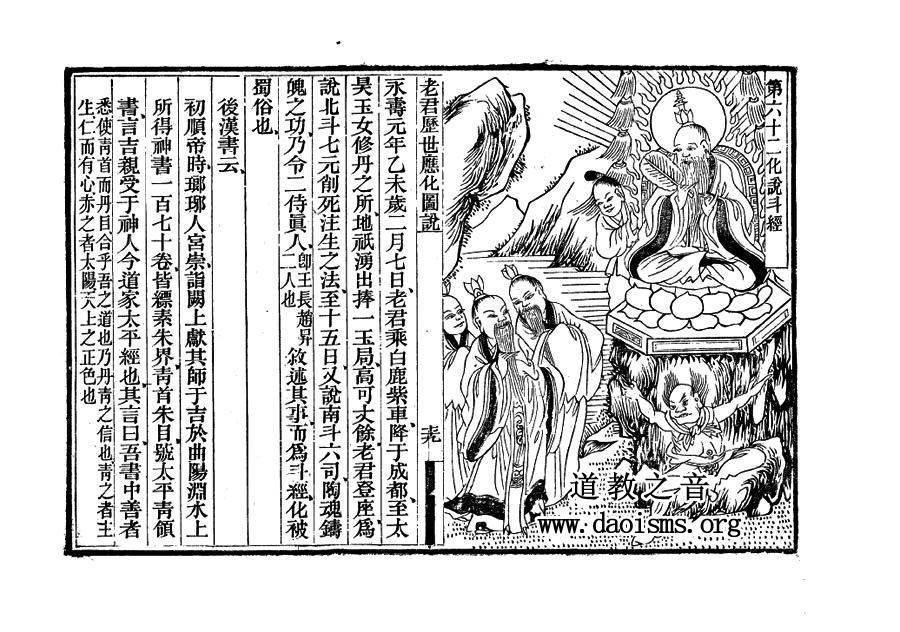 第六十二化說斗經
老君歷世應化圖說
永壽元年乙未歲二月七日、老君乘白鹿紫車、降于成都、至太
昊玉女修丹之所、地祇湧出、捧一玉局、高可丈餘、老君登座、爲
說北斗七元削死注生之法、至十五日、又說南斗六司陶魂鑄
魄之功、乃令二侍眞人、卽王長趙昇二人也、敘述其事、而爲斗經、化被
蜀俗也、
後漢書云、
初順帝時、瑯琊人宮崇、詣闕上獻其師于吉於曲陽淵水上
所得神書一百七十卷、皆縹素朱界、靑首朱目、號太平靑領
書、言吉親受于神人、今道家太平經也、其言曰、吾書中善者
悉使靑首而丹目合乎吾之道也乃丹靑之信也靑之者主
生仁而有心赤之者太陽天上之正色也
道教之音
www.daoisms.org